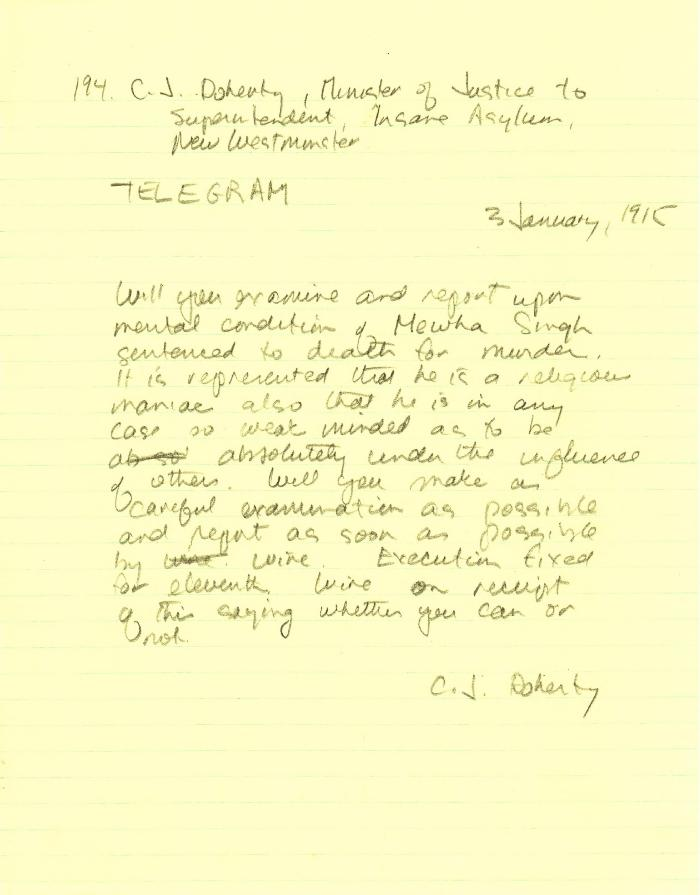 194. C.J. Doherty, Minister of Justice to
Superintendent, Insane Asylum,
New Westminster
TELEGRAM
3 January, 1915
Will you examine and report upon
mental condition of Mewha Singh
sentenced to death for murder.
It is represented that he is a religious
maniac also that he is in any
case so weak minded as to be
ab so absolutely under the influence
of others. Will you make as
careful examination as possible
and report as soon as possible
by wire. wire. Execution fixed
for eleventh. Wire on receipt
of this saying whether you can or
not.
C.J. Doherty